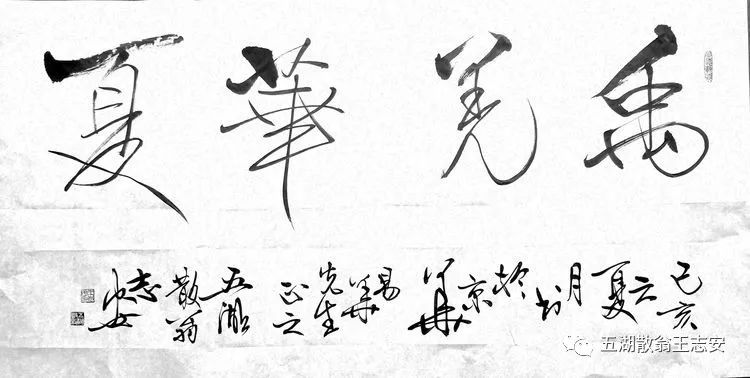 禹羌華夏
己亥之夏月书於京华易華先生正之五湖散翁志安
五湖散翁王志安